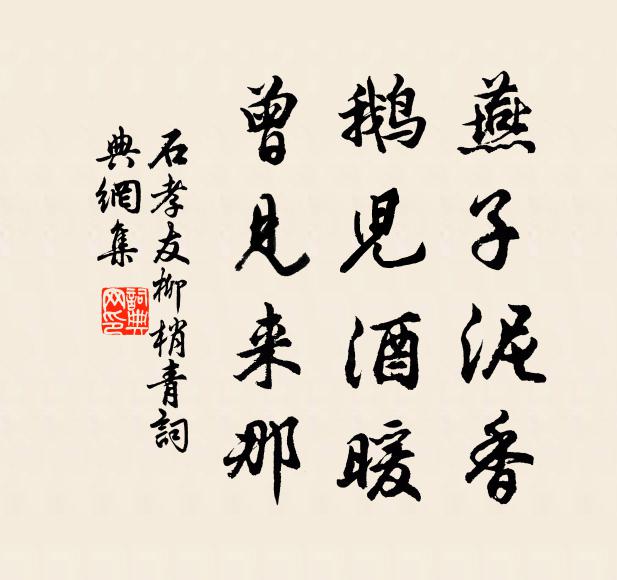 燕子泥香
鵝児酒暖
曾見来那
石孝友柳梢青詞
典網集
詞典
网印